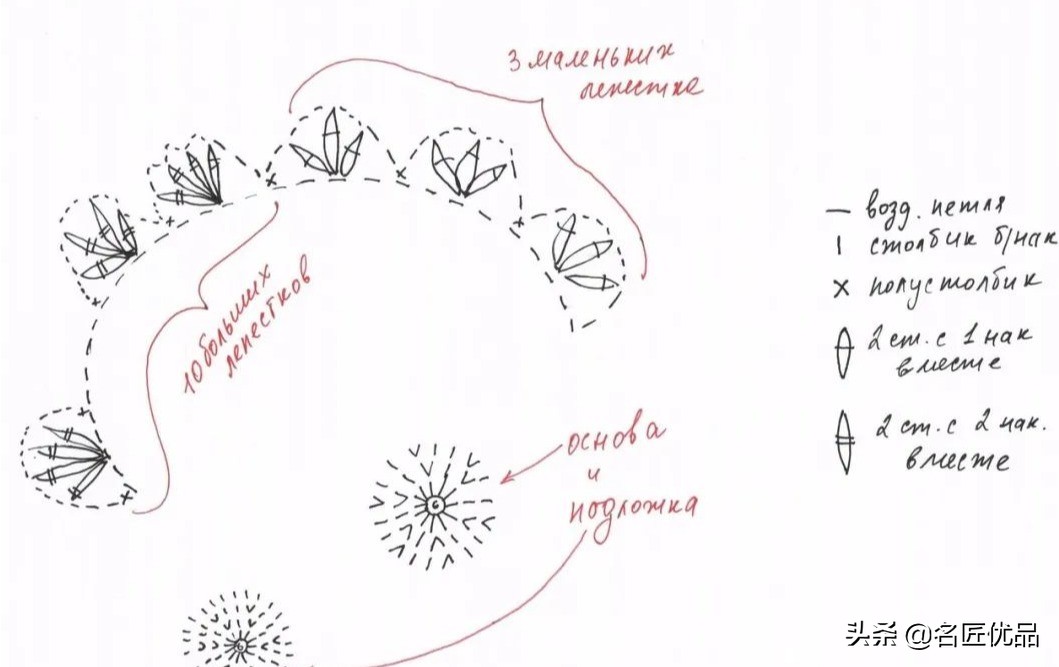 3 маленьких
лепестка
10 больших
лепестков
— возд. петля
| столбик б/нак
x полустолбик
2 ст. с 1 нак
вместе
2 ст. с 2 нак.
вместе
основа
и
подложка
6
6
头条 @名匠优品